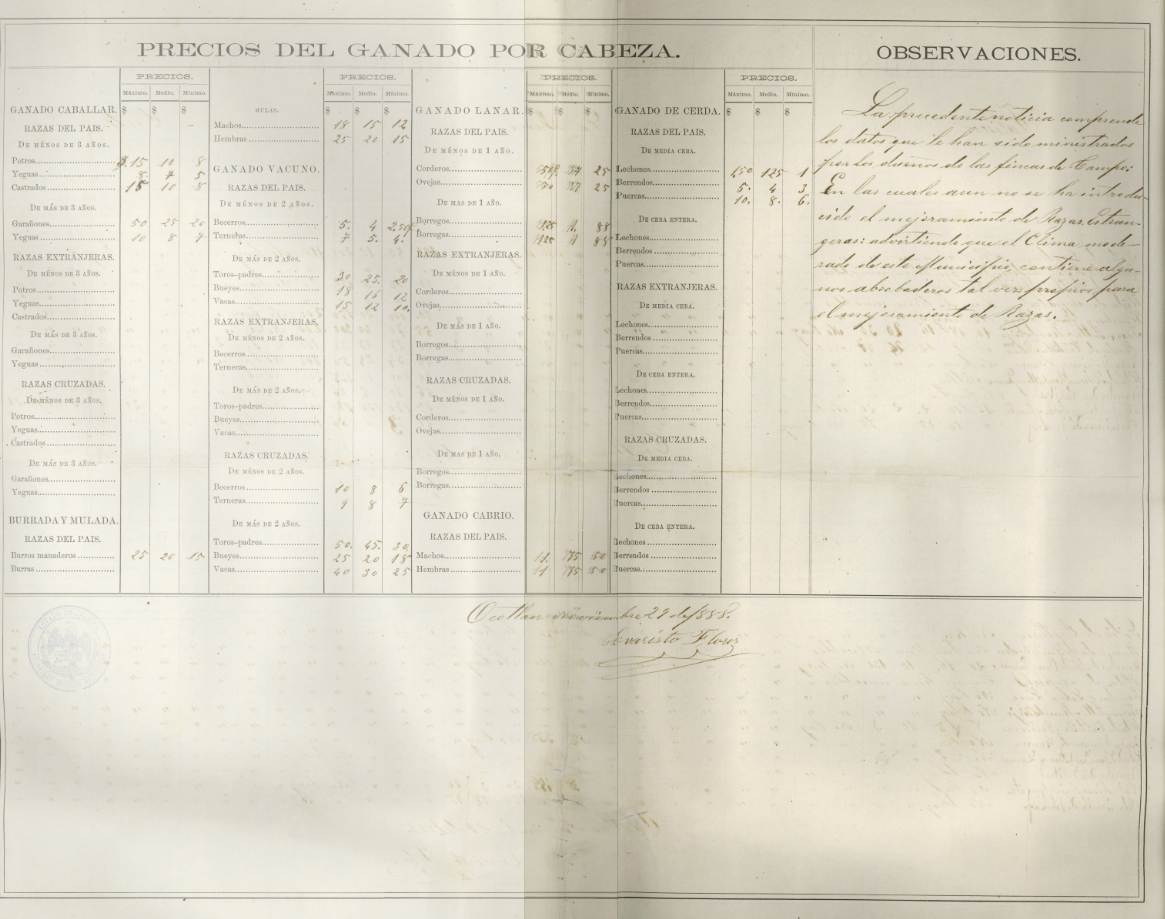 PRECIOS DEL GANADO POR CABEZA.
PRECIOS.
Máximo. Medio. Mínimo.
GANADO CABALLAR. $ $ $
RAZAS DEL PAIS.
DE MÉNOS DE 3 AÑOS.
Potros 15 10 8
Yeguas 8 7 5
Castrados 15 10 8
DE MÁS DE 3 AÑOS.
Garañones 50 25 20
Yeguas 10 8 7
RAZAS EXTRANJERAS.
DE MÉNOS DE 3 AÑOS.
Potros
Yeguas
Castrados
DE MÁS DE 3 AÑOS.
Garañones
Yeguas
RAZAS CRUZADAS.
DE MÉNOS DE 3 AÑOS.
Potros
Yeguas
Castrados
DE MÁS DE 3 AÑOS.
Garañones
Yeguas
BURRADA Y MULADA.
RAZAS DEL PAIS.
Burros manaderos 25 20 15
Burras
PRECIOS.
Máximo. Medio. Mínimo.
MULAS. $ $ $
Machos 18 15 12
Hembras 25 20 15
GANADO VACUNO.
RAZAS DEL PAIS.
DE MÉNOS DE 2 AÑOS.
Becerros 5. 4 2,50
Terneras 7 5. 4.
DE MÁS DE 2 AÑOS.
Toros-padres 30 25. 20
Bueyes 18 16 12
Vacas 15 12 10.
RAZAS EXTRANJERAS.
DE MÉNOS DE 2 AÑOS.
Becerros
Terneras
DE MÁS DE 2 AÑOS.
Toros-padres
Bueyes
Vacas
RAZAS CRUZADAS.
DE MÉNOS DE 2 AÑOS.
Becerros 10 8 6
Terneras 9 8 7
DE MÁS DE 2 AÑOS.
Toros-padres 50. 45. 30
Bueyes 25 20 18
Vacas 40 30 25
PRECIOS.
Máximo. Medio. Mínimo.
GANADO LANAR. $ $ $
RAZAS DEL PAIS.
DE MÉNOS DE 1 AÑO.
Corderos 37 25
Ovejas 37 25
DE MAS DE 1 AÑO.
Borregos 1,25 1. 88
Borregas 1,25 1 88
RAZAS EXTRANJERAS.
DE MÉNOS DE 1 AÑO.
Corderos
Ovejas
DE MÁS DE 1 AÑO.
Borregos
Borregas
RAZAS CRUZADAS.
DE MÉNOS DE 1 AÑO.
Corderos
Ovejas
DE MAS DE 1 AÑO.
Borregos
Borregas
GANADO CABRIO.
RAZAS DEL PAIS.
Machos 1 75 50
Hembras 1 75 50
PRECIOS.
Máximo. Medio. Mínimo.
GANADO DE CERDA. $ $ $
RAZAS DEL PAIS.
DE MEDIA CEBA.
Lechones 1,50 125 1
Berrendos 5. 4 3
Puercas 10. 8. 6.
DE CEBA ENTERA.
Lechones
Berrendos
Puercas
RAZAS EXTRANJERAS.
DE MEDIA CEBA.
Lechones
Berrendos
Puercas
DE CEBA ENTERA.
Lechones
Berrendos
Puercas
RAZAS CRUZADAS.
DE MEDIA CEBA.
Lechones
Berrendos
Puercas
DE CEBA ENTERA.
Lechones
Berrendos
Puercas
OBSERVACIONES.
La precedente noticia comprende
los datos que le han sido ministrados
por los dueños de las fincas de Campo;
En las cuales aun no se ha introdu-
cido el mejoramiento de Razas Estran-
geras: advirtiendo que el Clima mode-
rado de este Municipio, contiene algu-
nos abrebaderos tal vez propios para
el mejoramiento de Razas.
Ocotlan Noviembre 29 de 1888.
Evaristo Flores